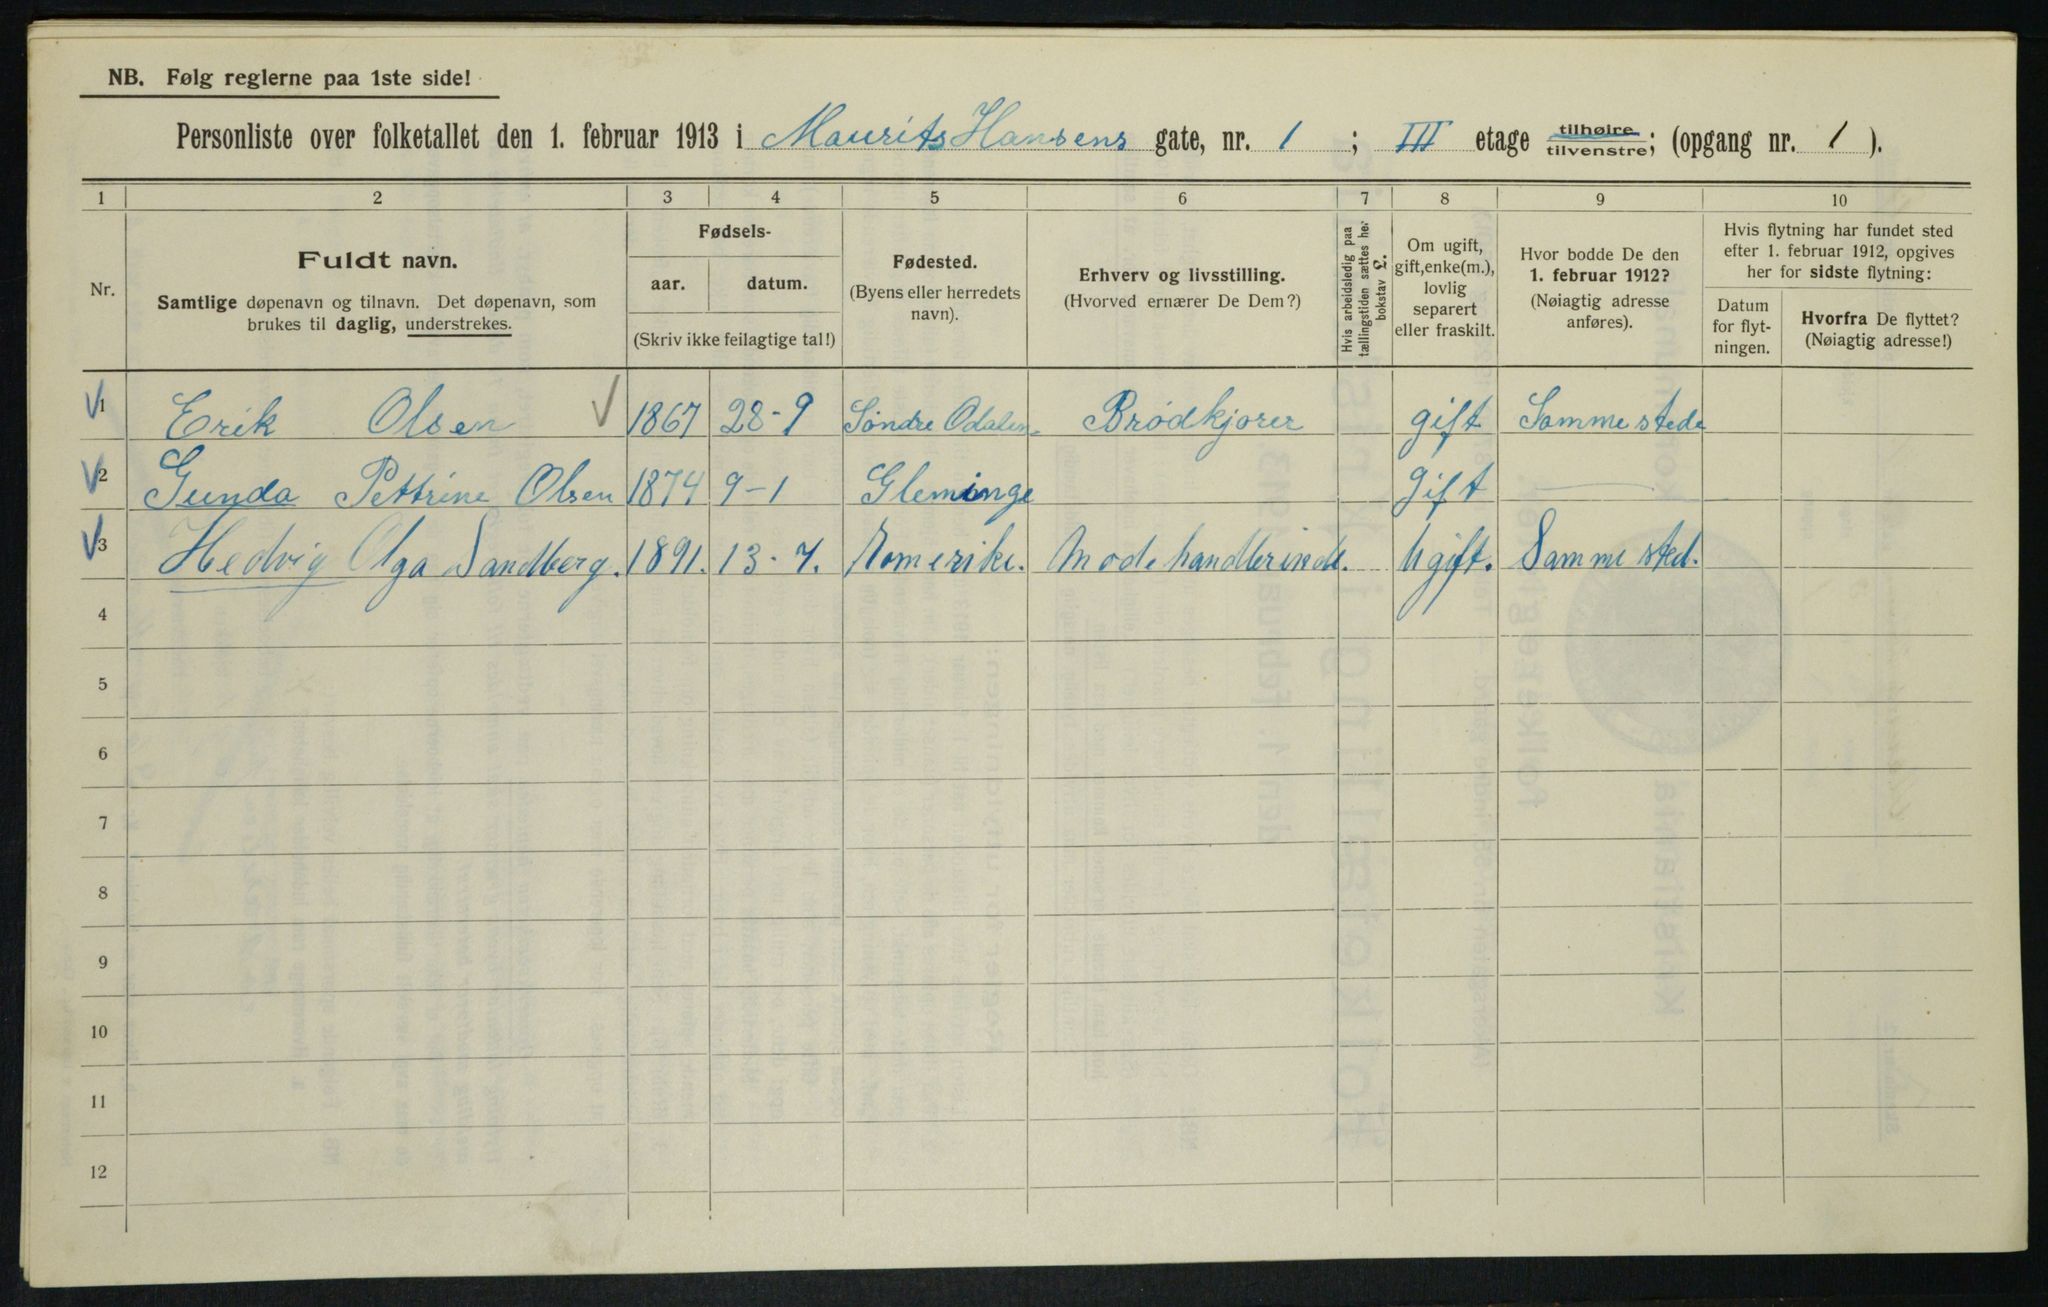 NB. Følg reglerne paa 1ste side!
Personliste over folketallet den 1. februar 1913 i Maurits Hansens gate, nr. 1 ; III etage tilhøire tilvenstre; (opgang nr. 1 ).
1 2 3 4 5 6 7 8 9 10
Nr.
Fuldt navn.
Samtlige døpenavn og tilnavn. Det døpenavn, som
brukes til daglig, understrekes.
Fødsels-
aar. datum.
(Skriv ikke feilagtige tal!)
Fødested.
(Byens eller herredets
navn).
Erhverv og livsstilling.
(Hvorved ernærer De Dem?)
Hvis arbeidsledig paa
tællingstiden sættes her
bokstav L.
Om ugift,
gift, enke(m.),
lovlig
separert
eller fraskilt.
Hvor bodde De den
1. februar 1912?
(Nøiagtig adresse
anføres).
Hvis flytning har fundet sted
efter 1. februar 1912, opgives
her for sidste flytning:
Datum
for flyt-
ningen.
Hvorfra De flyttet?
(Nøiagtig adresse!)
1 Erik Olsen 1867 28-9 Søndre Odalen Brødkjører gift Samme stede
2 Gunda Pettrine Olsen 1874 9-1 Gleminge gift —
3 Hedvig Olga Sandberg. 1891. 13-7. Romerike. Modehandlerinde. Ugift. Samme sted.
4
5
6
7
8
9
10
11
12